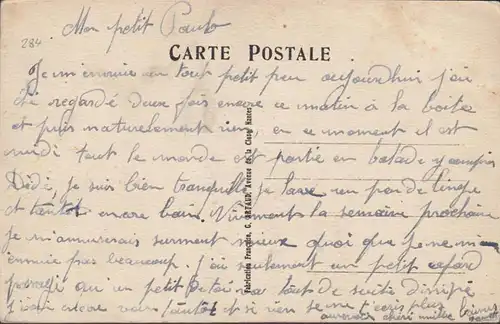 284
Mon petit Paulo
CARTE POSTALE
Je m'ennuie un tout petit peu aujourd'hui j'ai
été regardé deux fois encore ce matin à la boite
et puis naturellement rien, en ce moment il est
midi tout le monde est partie en balade y compris
Dédé, je suis bien tranquille, je lave un peu de linge
et tantôt encore bain. Vivement la semaine prochaine
je m'amuserais surment mieux quoi que je ne m'en
ennuie pas beaucoup. J'ai seulement un petit cafard
parceque qui un petit
j'irai encore voir tantôt et si rien je ne t'écris plus
au revoir chéri mille
Fabrication Française, C. ARTAUD, Avenue de la Close, Nantes